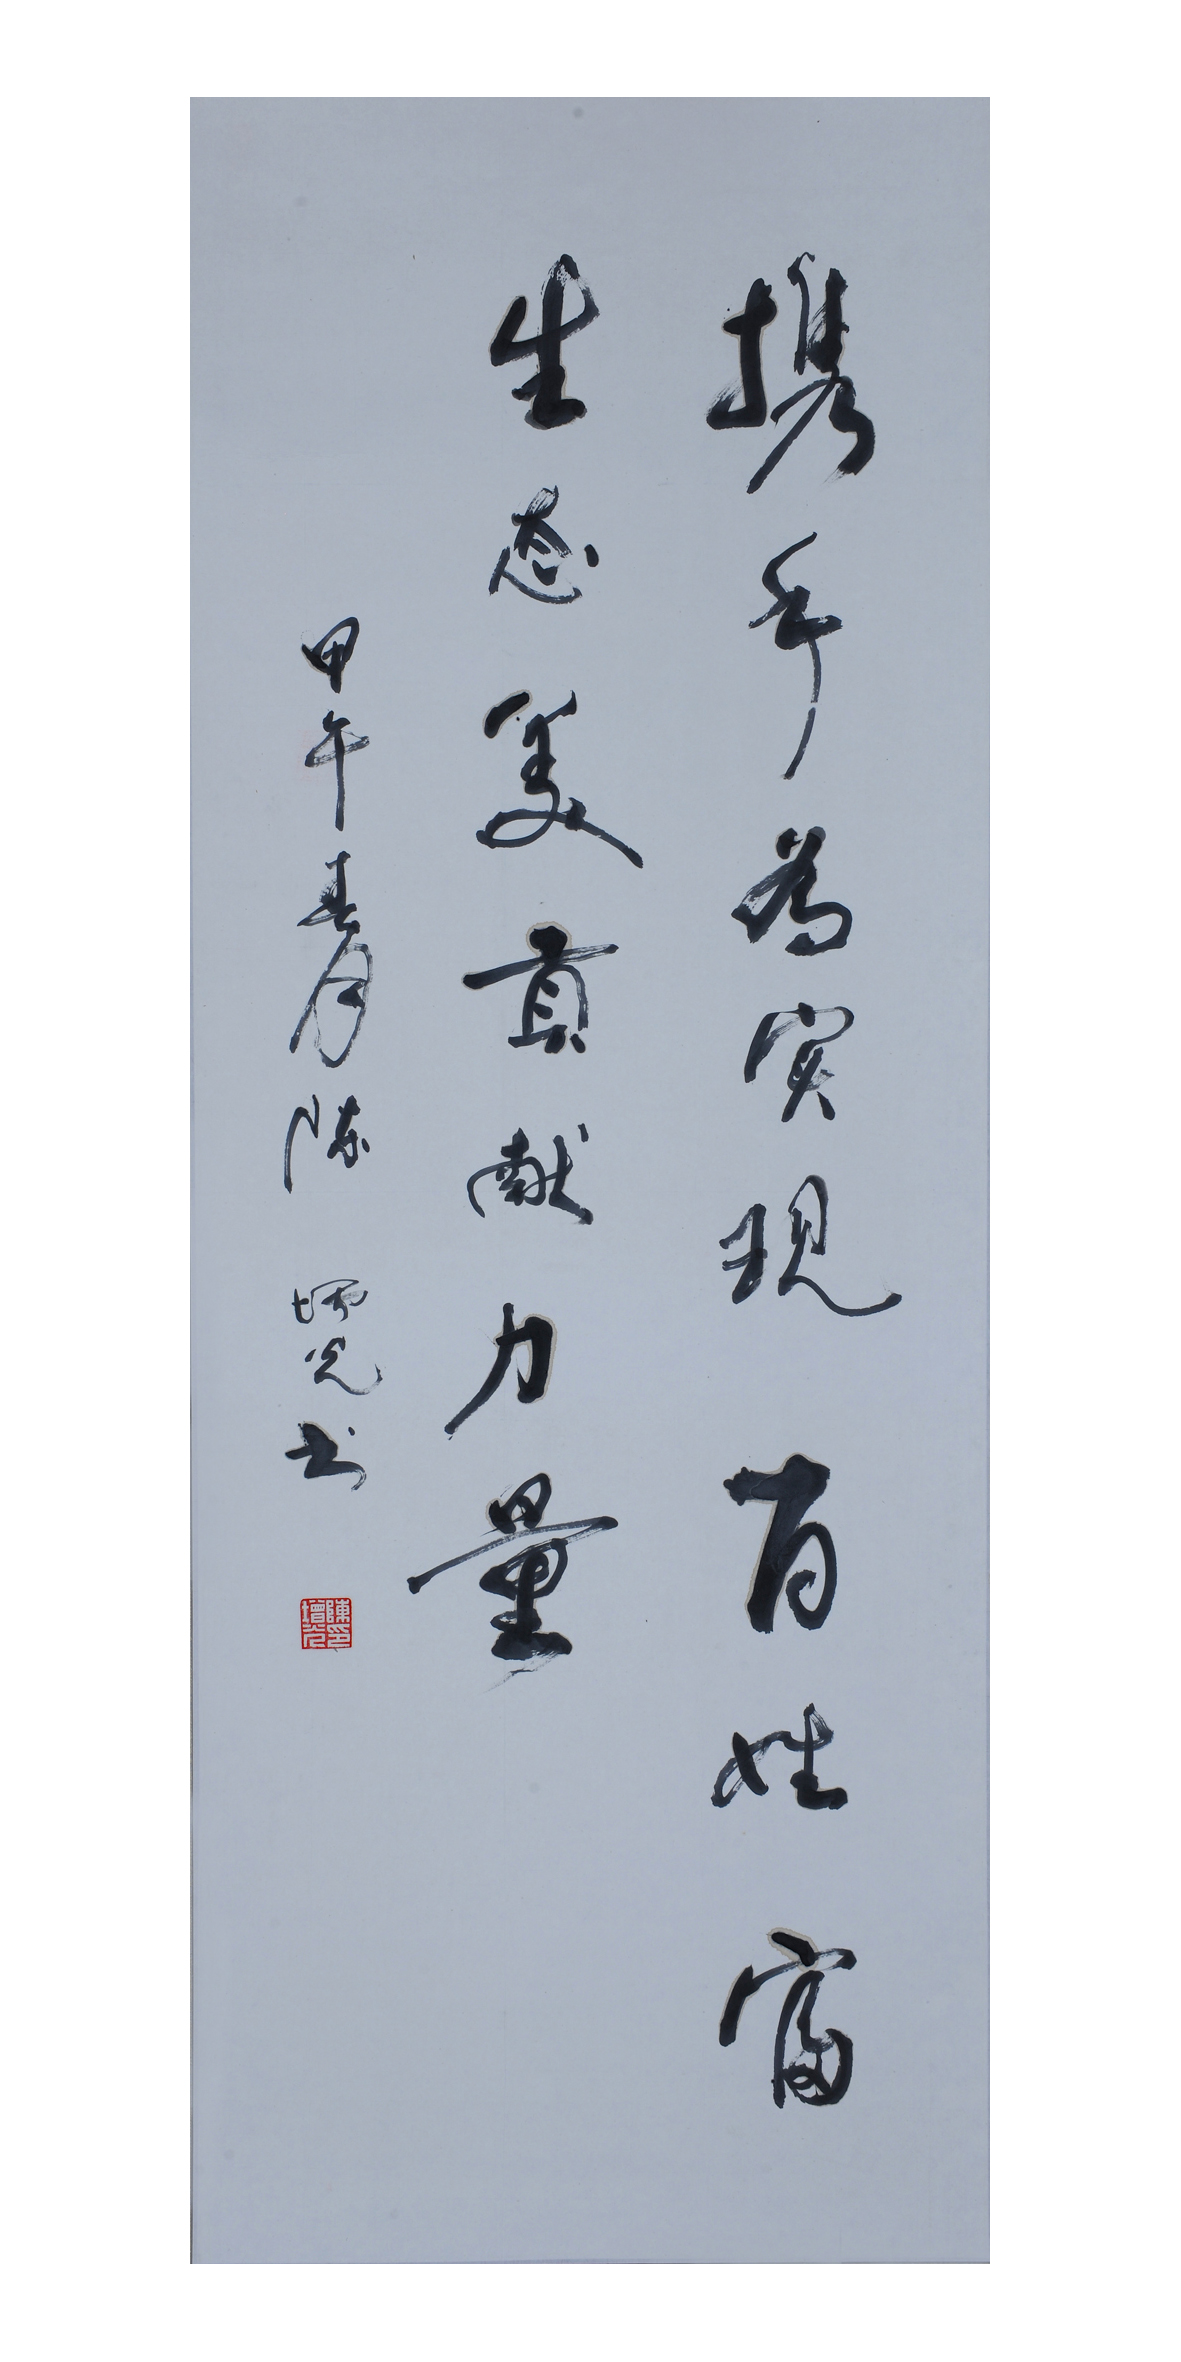 携手为实现百姓富
生态美贡献力量
甲午春月陈增光书
陳印增光